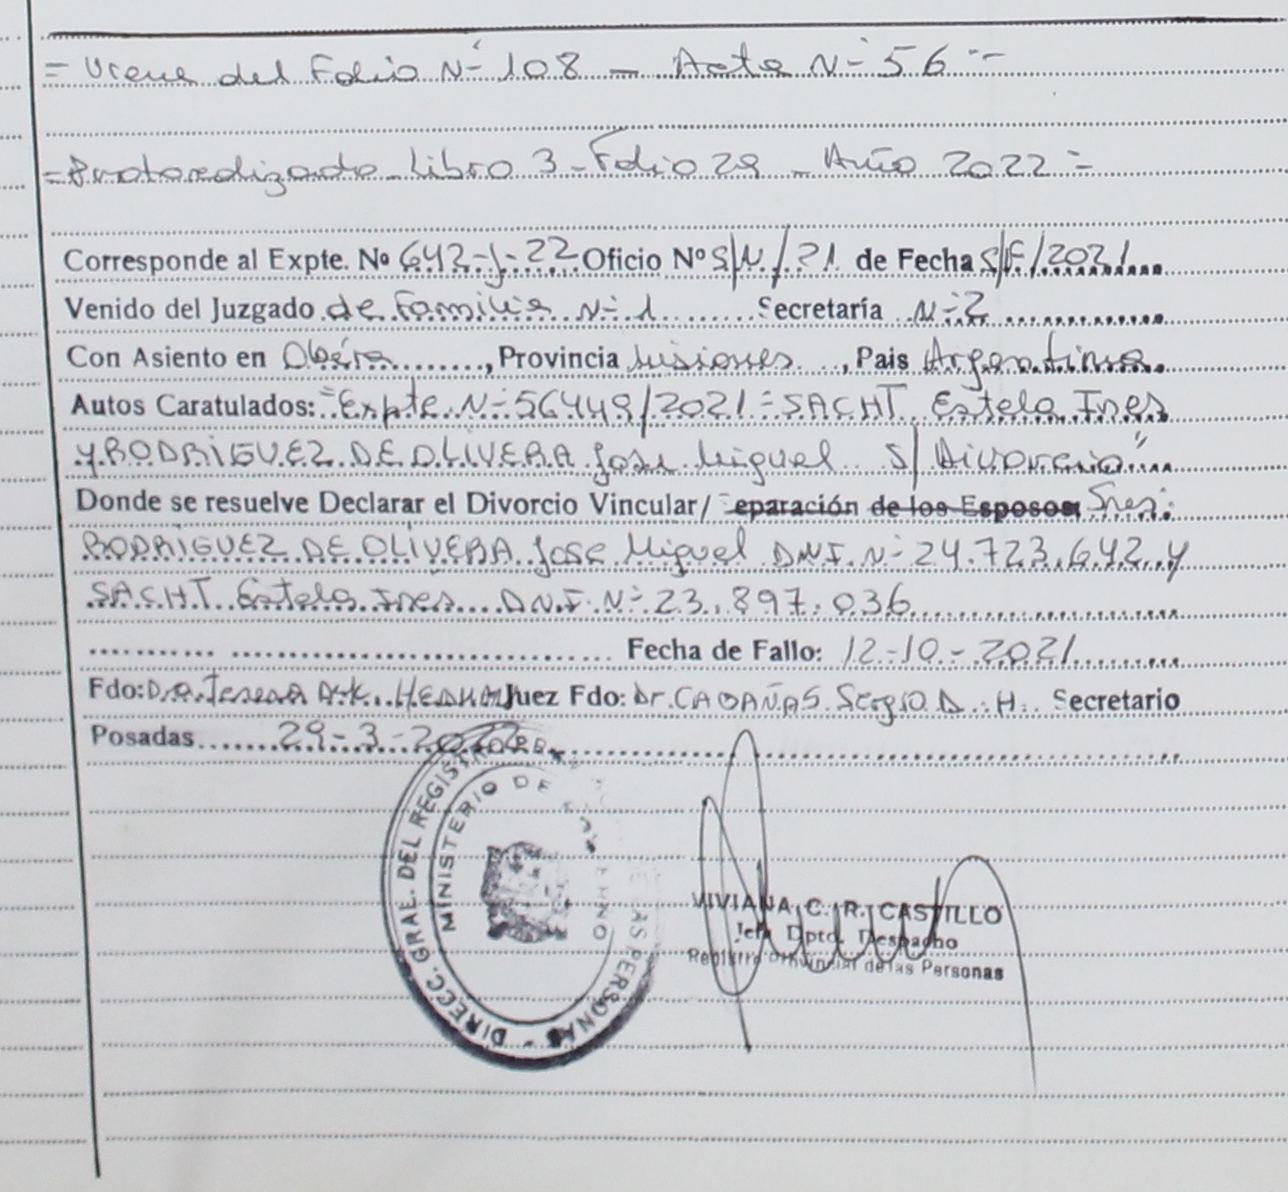 = Viene del Folio Nº 108 - Acta Nº 56 =
= Protocolizado - Libro 3 - Folio 29 - Año 2022 =
Corresponde al Expte. Nº 642-J-22 Oficio Nº S/N/21 de Fecha S/F/2021
Venido del Juzgado de Familia Nº 1 Secretaría Nº 2
Con Asiento en Oberá, Provincia Misiones, Pais Argentina
Autos Caratulados: "Expte Nº 56449/2021 = SACHT Estela Ines
y RODRIGUEZ DE OLIVERA Jose Miguel S/ Divorcio"
Donde se resuelve Declarar el Divorcio Vincular/ Separación de los Esposos: Sres:
RODRIGUEZ DE OLIVERA Jose Miguel D.N.I. Nº 24.723.642 y
SACHT Estela Inés D.N.I. Nº 23.897.036
Fecha de Fallo: 12-10-2021
Fdo: Dra. Teresa Juez Fdo: Dr. CABAÑAS Sergio D. H. Secretario
Posadas 29-3-2022
DIRECC. GRAL. DEL REGISTRO DE LAS PERSONAS
MINISTERIO DE GOBIERNO
VIVIANA C. R. CASTILLO
Jefa Dpto. Despacho
Registro Provincial de las Personas